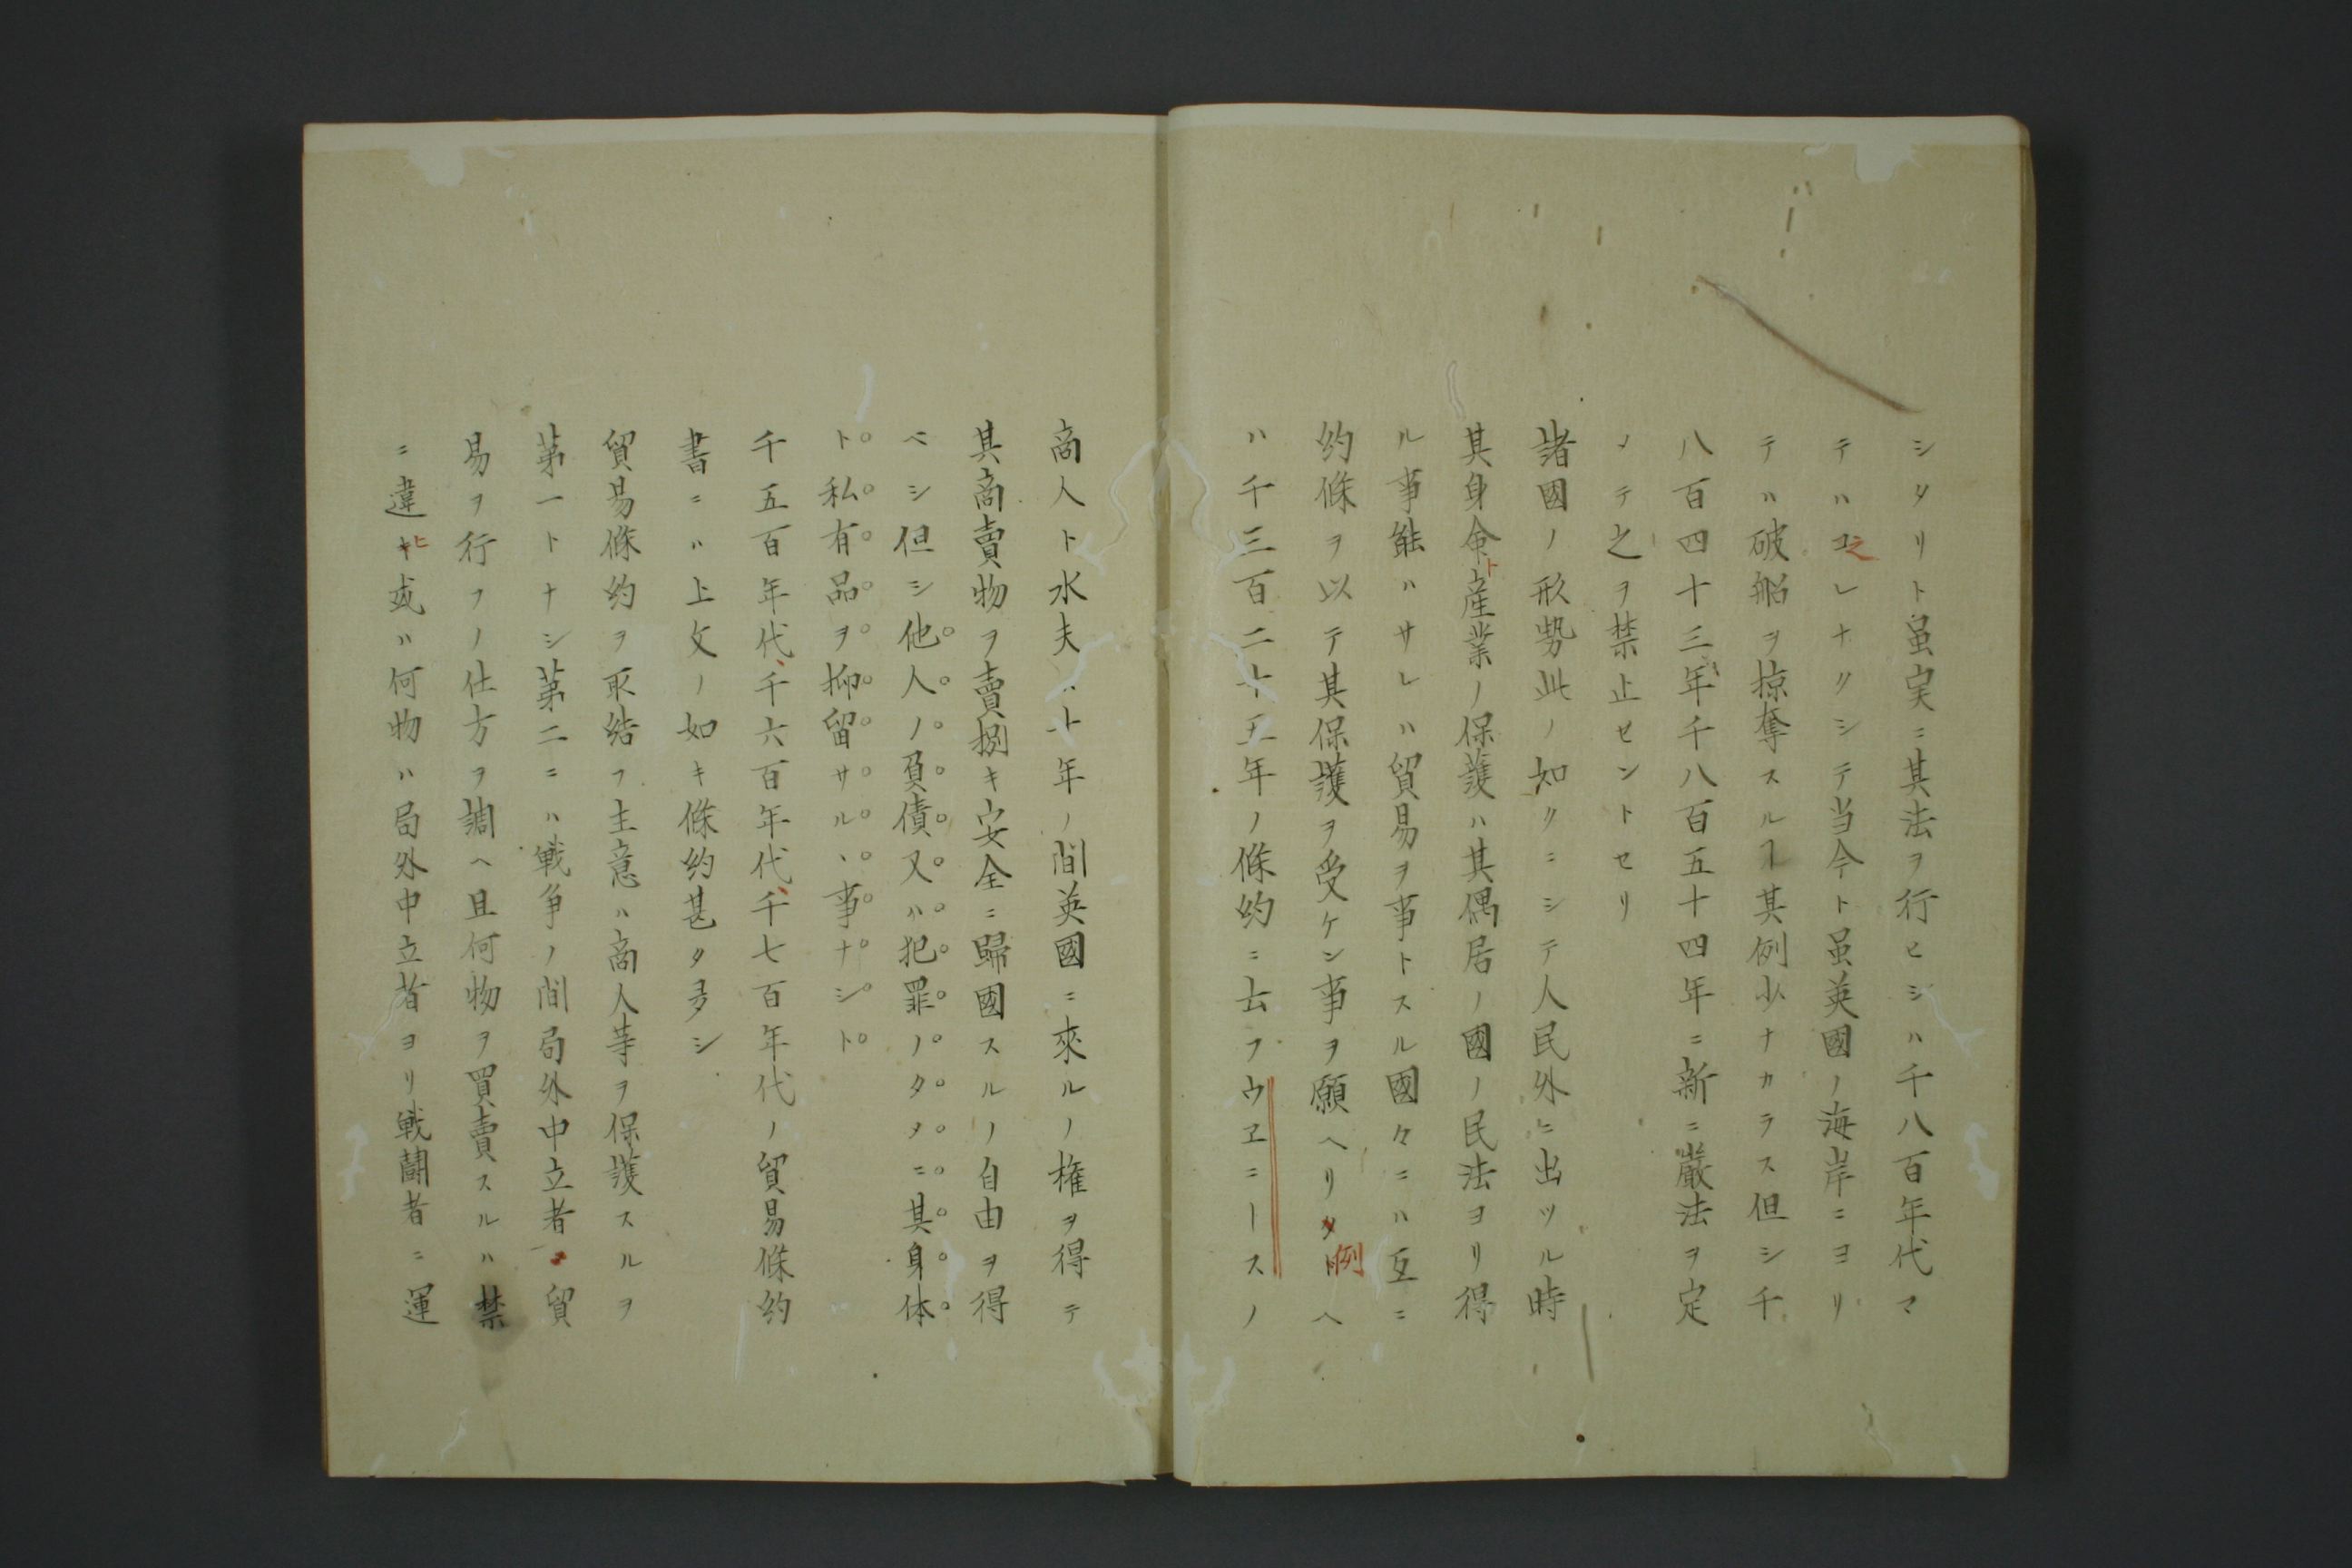 シタリト虽実ニ其法ヲ行ヒシハ千八百年代マ
テハ之レナクシテ当今ト虽英國ノ海岸ニヨリ
テハ破船ヲ掠奪スルヿ其例少ナカラス但シ千
八百四十三年千八百五十四年ニ新ニ厳法ヲ定
メテ之ヲ禁止セントセリ
諸國ノ形勢此ノ如クニシテ人民外ニ出ツル時
其身命ト産業ノ保護ハ其偶居ノ國ノ民法ヨリ得
ル事能ハサレハ貿易ヲ事トスル國々ニハ互ニ
約條ヲ以テ其保護ヲ受ケン事ヲ願ヘリ例ヘ
ハ千三百二十五年ノ條約ニ云フウヱニースノ
商人ト水夫ハ十年ノ間英國ニ來ルノ権ヲ得テ
其商賣物ヲ賣捌キ安全ニ歸國スルノ自由ヲ得
ベシ但シ他人ノ負債又ハ犯罪ノタメニ其身体
ト私有品ヲ抑留サルヽ事ナシト
千五百年代、千六百年代、千七百年代ノ貿易條約
書ニハ上文ノ如キ條約甚タ多シ
貿易條約ヲ取結フ主意ハ商人等ヲ保護スルヲ
第一トナシ第二ニハ戦争ノ間局外中立者貿
易ヲ行フノ仕方ヲ調ヘ且何物ヲ買賣スルハ禁
ニ違ヒ或ハ何物ハ局外中立者ヨリ戦闘者ニ運